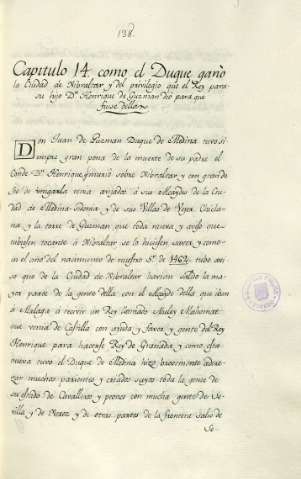 138.
Capitulo 14 como el Duque ganò
la Ciudad de Gibraltar, y del privilegio que el Rey para
su hijo Dn. Henrique de Guzman dio para que
fuese della
Don Juan de Guzman Duque de Medina tuvo si
empre gran pena de la muerte de su padre el
Conde Dn. Henrique, q murio sobre Gibraltar, y con gran de
seo de vengarla tenia a sus Alcaydes de la Ciu
dad de Medina Sidonia y de sus Villas de Vejer Chicla
na, y la torre de Guzman que toda nueva, y aviso que
tubiesen tocante à Gibraltar se la hiciesen saver, y como
en el año del nacimiento de nuestro Sr. de 1462 tubo avi
so que de la Ciudad de Gibraltar havian salido la ma
yor parte de la gente della, con el Alcayde della que iban
à Malaga à recivir un Rey llamado Muley Mahomat
que venia de Castilla con ayuda, y favor, y gente del Rey
Henrique para hacerse Rey de Granada, y como esta
nueva tuvo el Duque de Medina hizo
muchos parientes, y criados suyos toda la gente de
su estado de Cavalleros, y peones con mucha gente de Se
villa, y de Xerez, y de otras partes de la frontera salio de
Se-